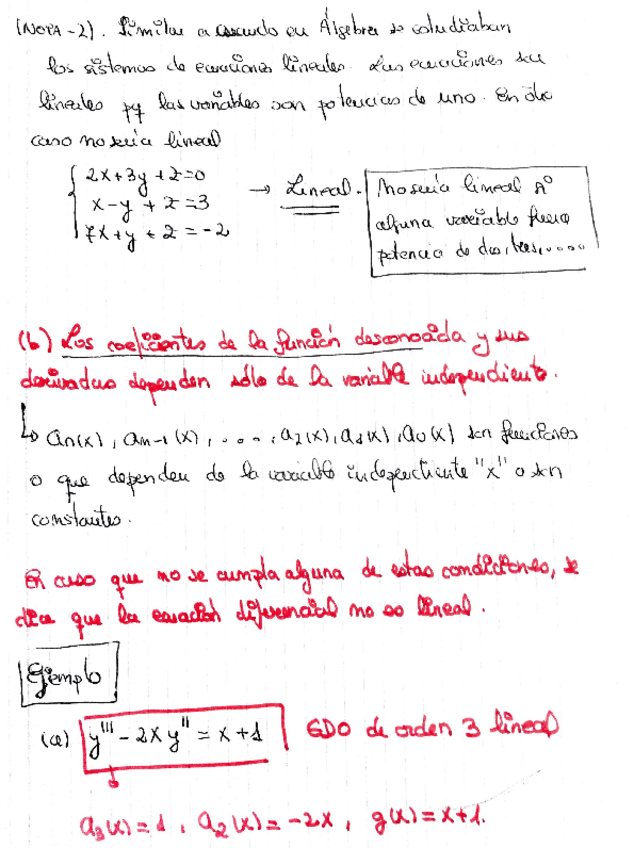 (NOTA-2). Similar a cuando en Álgebra se estudiaban
los sistemas de ecuaciones lineales. Las ecuaciones son
lineales pq las variables son potencias de uno. En otro
caso no sería lineal
2x+3y+z=0
x-y+z=3
7x+y+z=-2
→ Lineal.
No sería lineal si
alguna variable fuera
potencia de dos, tres,....
(b) Los coeficientes de la función desconocida y sus
derivadas dependen sólo de la variable independiente.
↳ an(x), an-1(x), ...., a2(x), a1(x), a0(x) son funciones
o que dependen de la variable independiente "x" o son
constantes.
En caso que no se cumpla alguna de estas condiciones, se
dice que la ecuación diferencial no es lineal.
Ejemplo
(a) y''' - 2xy'' = x+1
EDO de orden 3 lineal
a3(x)=1, a2(x)=-2x, g(x)=x+1.